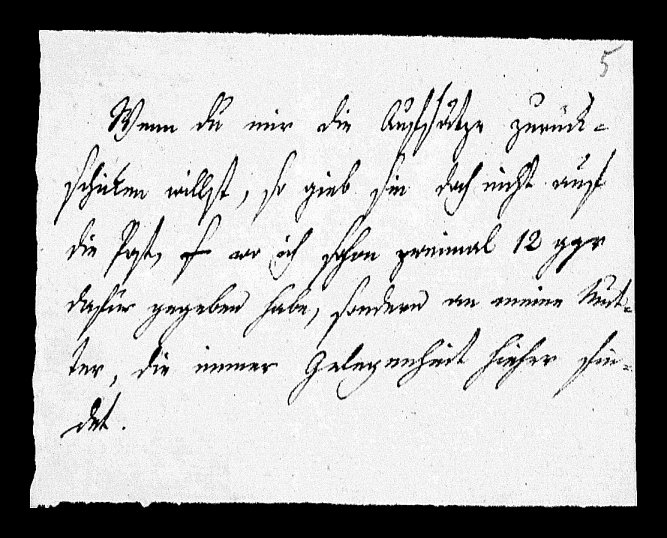 5
Wenn du mir die Aufsätze zurück=
schicken willst, so gieb sie doch nicht auf
die Post, wo ich schon zweimal 12 ggr
dafür gegeben habe, sondern an meine Mut=
ter, die immer Gelegenheit hieher fin=
det.